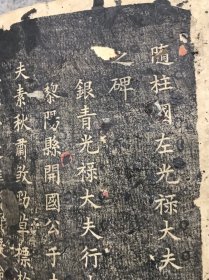 隨柱國左光祿大夫
之碑
銀青光祿大夫行
黎陽縣開國公于
夫素秋肅政勁草標